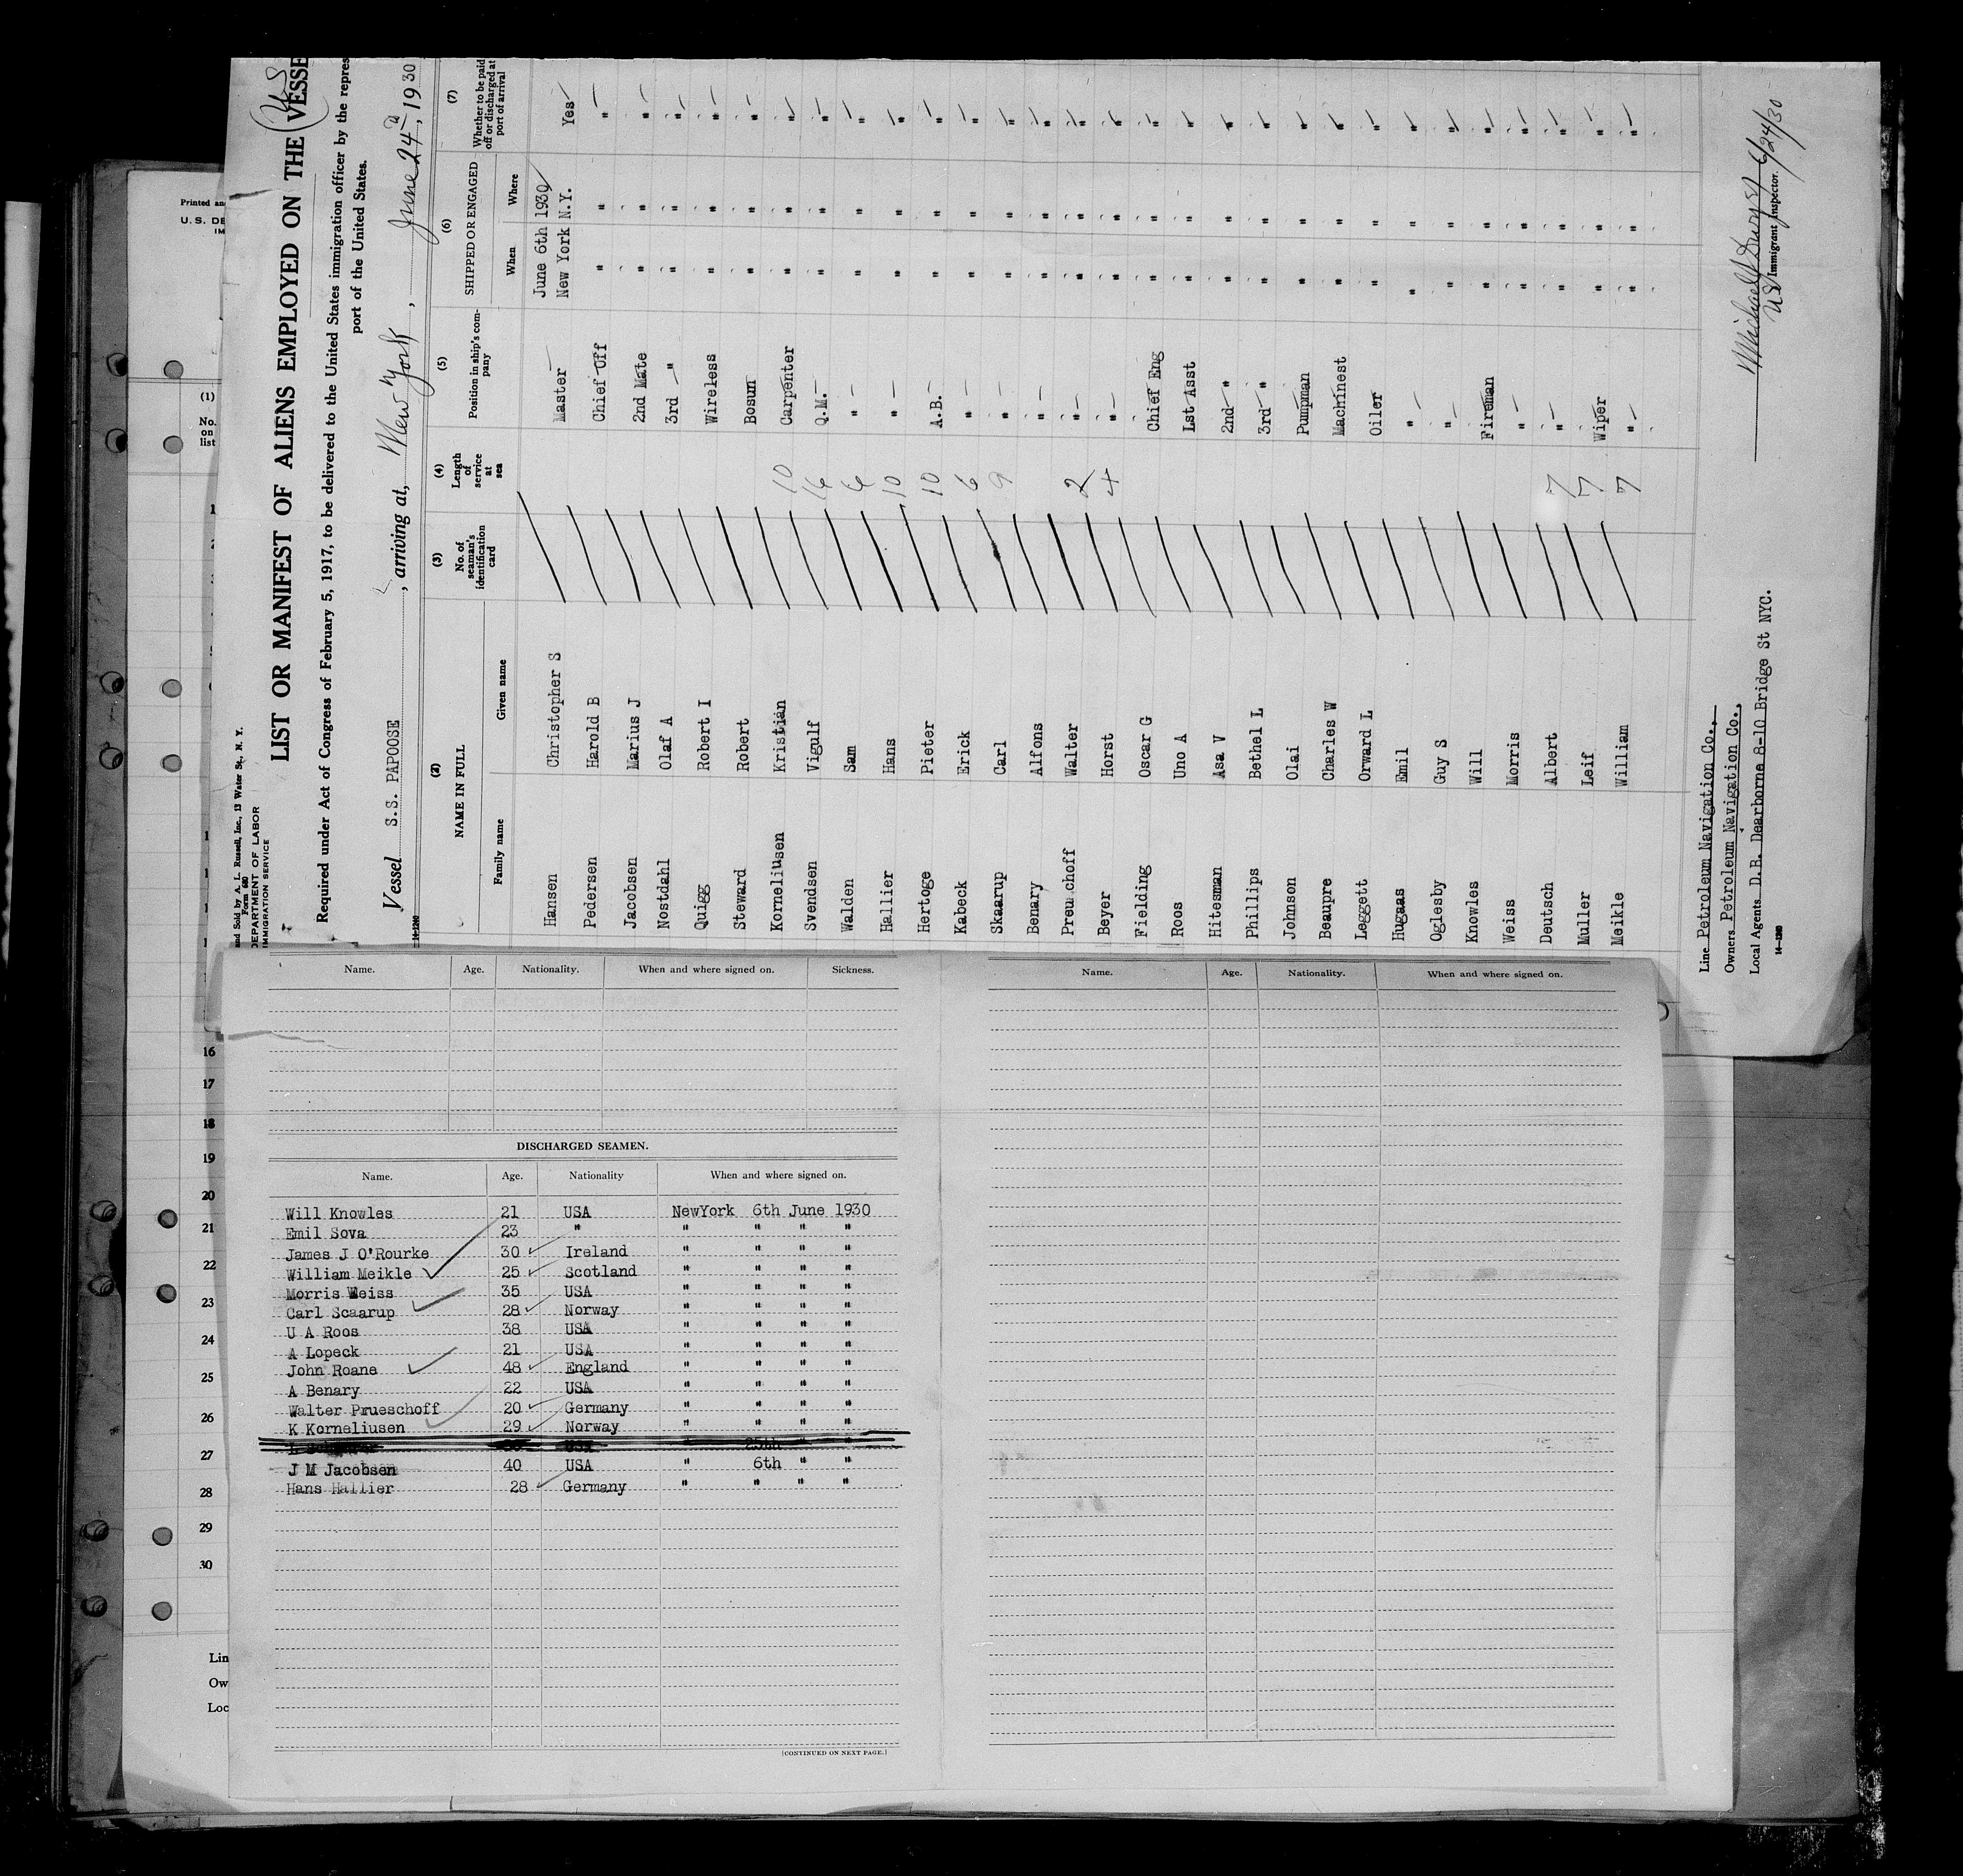 and Sold by A. L. Russell, Inc., 13 Water St., N. Y.
Form 680
DEPARTMENT OF LABOR
IMMIGRATION SERVICE
LIST OR MANIFEST OF ALIENS EMPLOYED ON THE VESSE
U.S
Required under Act of Congress of February 5, 1917, to be delivered to the United States immigration officer by the repres
port of the United States.
Vessel S.S. PAPOOSE, arriving at, New York, June 24th, 1930
14-1240
(2) (3) (4) (5) (6) (7)
NAME IN FULL
Family name Given name
No. of seaman's identification card
Length of service at sea
Position in ship's company
SHIPPED OR ENGAGED
When Where
Whether to be paid off or discharged at port of arrival
June 6th 1930
Hansen Christopher S Master New York N.Y. Yes
Pedersen Harold B Chief Off " " "
Jacobsen Marius J 2nd Mate " " "
Nostdahl Olaf A 3rd " " " "
Quigg Robert I Wireless " " "
Steward Robert Bosun " " "
Korneliusen Kristian 10 Carpenter " " "
Svendsen Vigulf 16 Q.M. " " "
Walden Sam 6 " " " "
Hallier Hans 10 " " " "
Hertoge Pieter 10 A.B. " " "
Kabeck Erick 6 " " " "
Skaarup Carl 9 " " " "
Benary Alfons " " " "
Preuschoff Walter 2 " " " "
Beyer Horst 4 " " " "
Fielding Oscar G Chief Eng " " "
Roos Uno A Lst Asst " " "
Hitesman Asa V 2nd " " " "
Phillips Bethel L 3rd " " " "
Johnson Olai Pumpman " " "
Beaupre Charles W Machinest " " "
Leggett Orward L Oiler " " "
Hugaas Emil " " " "
Oglesby Guy S " " " "
Knowles Will Fireman " " "
Weiss Morris " " " "
Deutsch Albert 7 " " " "
Muller Leif 7 Wiper " " "
Meikle William 7 " " " "
Line Petroleum Navigation Co.,
Owners Petroleum Navigation Co.,
Local Agents D.B. Dearborne 8-10 Bridge St NYC.
14-1240
US Immigrant Inspector. 6/24/30
Printed an
U.S. DE
IM
(1)
No. on list
16
17
18
19
20
21
22
23
24
25
26
27
28
29
30
Lin
Ow
Loc
Name. Age. Nationality. When and where signed on. Sickness.
Name. Age. Nationality. When and where signed on.
DISCHARGED SEAMEN.
Name. Age. Nationality When and where signed on.
Will Knowles 21 USA NewYork 6th June 1930
Emil Sova 23 " " " " "
James J O'Rourke 30 Ireland " " " "
William Meikle 25 Scotland " " " "
Morris Weiss 35 USA " " " "
Carl Scaarup 28 Norway " " " "
U A Roos 38 USA " " " "
A Lopeck 21 USA " " " "
John Roane 48 England " " " "
A Benary 22 USA " " " "
Walter Prueschoff 20 Germany " " " "
K Korneliusen 29 Norway " " " "
USA " 25th " "
J M Jacobsen 40 USA " 6th " "
Hans Hallier 28 Germany " " " "
[CONTINUED ON NEXT PAGE.]